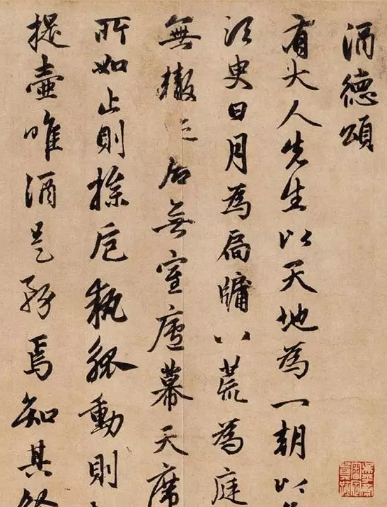 酒德頌
有大人先生以天地為一朝以
須臾日月為扃牖八荒為庭
無轍居無室廬幕天席
所如止則操卮執觚動則
提壺唯酒是務焉知其